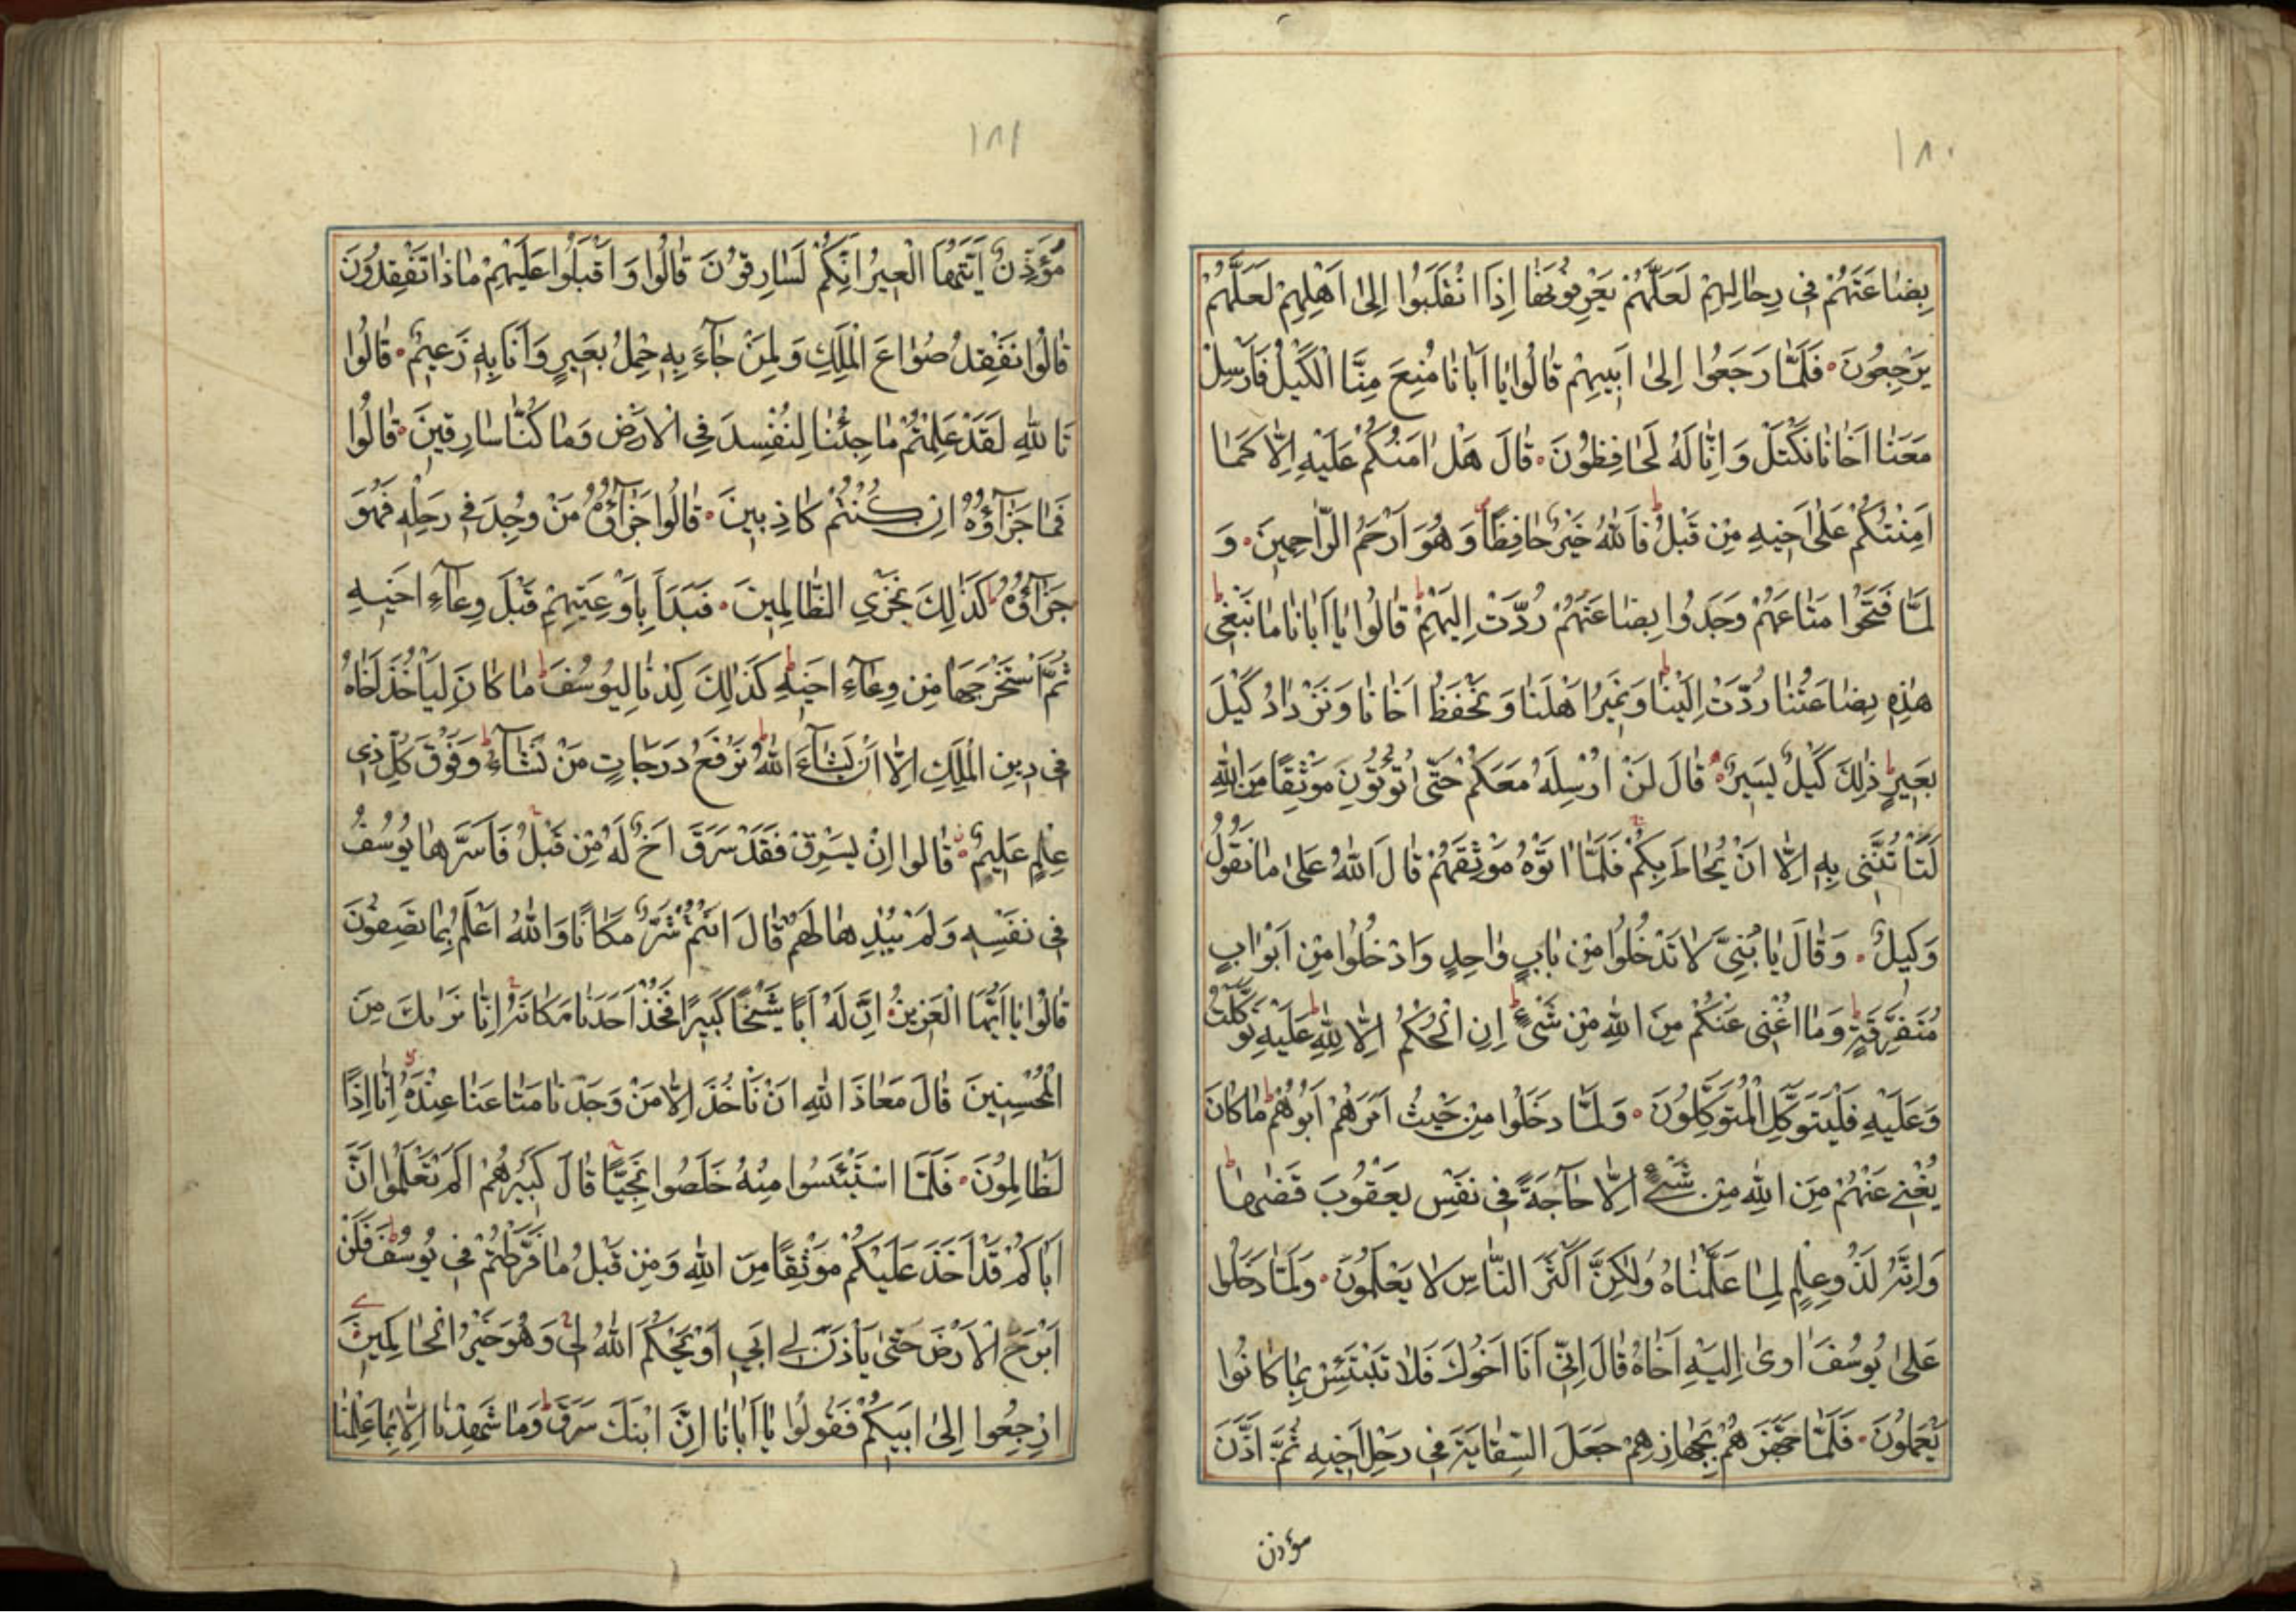 ١٨٠
بِضَاعَتَهُمْ فِي رِحَالِهِمْ لَعَلَّهُمْ يَعْرِفُونَهَا إِذَا انْقَلَبُوا إِلَى أَهْلِهِمْ لَعَلَّهُمْ
يَرْجِعُونَ فَلَمَّا رَجَعُوا إِلَى أَبِيهِمْ قَالُوا يَا أَبَانَا مُنِعَ مِنَّا الْكَيْلُ فَأَرْسِلْ
مَعَنَا أَخَانَا نَكْتَلْ وَإِنَّا لَهُ لَحَافِظُونَ قَالَ هَلْ اٰمَنُكُمْ عَلَيْهِ إِلَّا كَمَا
اَمِنْتُكُمْ عَلَى أَخِيهِ مِنْ قَبْلُ فَاللّٰهُ خَيْرٌ حَافِظًا وَهُوَ أَرْحَمُ الرَّاحِمِينَ وَ
لَمَّا فَتَحُوا مَتَاعَهُمْ وَجَدُوا بِضَاعَتَهُمْ رُدَّتْ إِلَيْهِمْ قَالُوا يَا أَبَانَا مَا نَبْغِي
هٰذِهِ بِضَاعَتُنَا رُدَّتْ إِلَيْنَا وَنَمِيرُ أَهْلَنَا وَنَحْفَظُ أَخَانَا وَنَزْدَادُ كَيْلَ
بَعِيرٍ ذٰلِكَ كَيْلٌ يَسِيرٌ قَالَ لَنْ أُرْسِلَهُ مَعَكُمْ حَتَّى تُؤْتُونِ مَوْثِقًا مِنَ اللّٰهِ
لَتَأْتُنَّنِي بِهِ إِلَّا أَنْ يُحَاطَ بِكُمْ فَلَمَّا اٰتَوْهُ مَوْثِقَهُمْ قَالَ اللّٰهُ عَلَى مَا نَقُولُ
وَكِيلٌ وَقَالَ يَا بَنِيَّ لَا تَدْخُلُوا مِنْ بَابٍ وَاحِدٍ وَادْخُلُوا مِنْ أَبْوَابٍ
مُتَفَرِّقَةٍ وَمَا أُغْنِي عَنْكُمْ مِنَ اللّٰهِ مِنْ شَيْءٍ إِنِ الْحُكْمُ إِلَّا لِلّٰهِ عَلَيْهِ تَوَكَّلْتُ
وَعَلَيْهِ فَلْيَتَوَكَّلِ الْمُتَوَكِّلُونَ وَلَمَّا دَخَلُوا مِنْ حَيْثُ أَمَرَهُمْ أَبُوهُمْ مَا كَانَ
يُغْنِي عَنْهُمْ مِنَ اللّٰهِ مِنْ شَيْءٍ إِلَّا حَاجَةً فِي نَفْسِ يَعْقُوبَ قَضٰىهَا
وَإِنَّهُ لَذُو عِلْمٍ لِمَا عَلَّمْنَاهُ وَلٰكِنَّ أَكْثَرَ النَّاسِ لَا يَعْلَمُونَ وَلَمَّا دَخَلُوا
عَلَى يُوسُفَ اٰوٰى إِلَيْهِ أَخَاهُ قَالَ إِنِّي أَنَا أَخُوكَ فَلَا تَبْتَئِسْ بِمَا كَانُوا
يَعْمَلُونَ فَلَمَّا جَهَّزَهُمْ بِجَهَازِهِمْ جَعَلَ السِّقَايَةَ فِي رَحْلِ أَخِيهِ ثُمَّ أَذَّنَ
مؤذن
١٨١
مُؤَذِّنٌ أَيَّتُهَا الْعِيرُ إِنَّكُمْ لَسَارِقُونَ قَالُوا وَأَقْبَلُوا عَلَيْهِمْ مَاذَا تَفْقِدُونَ
قَالُوا نَفْقِدُ صُوَاعَ الْمَلِكِ وَلِمَنْ جَآءَ بِهِ حِمْلُ بَعِيرٍ وَأَنَا بِهِ زَعِيمٌ قَالُوا
تَاللّٰهِ لَقَدْ عَلِمْتُمْ مَا جِئْنَا لِنُفْسِدَ فِي الْأَرْضِ وَمَا كُنَّا سَارِقِينَ قَالُوا
فَمَا جَزَآؤُهُ إِنْ كُنْتُمْ كَاذِبِينَ قَالُوا جَزَآؤُهُ مَنْ وُجِدَ فِي رَحْلِهِ فَهُوَ
جَزَآؤُهُ كَذٰلِكَ نَجْزِي الظَّالِمِينَ فَبَدَأَ بِأَوْعِيَتِهِمْ قَبْلَ وِعَآءِ أَخِيهِ
ثُمَّ اسْتَخْرَجَهَا مِنْ وِعَآءِ أَخِيهِ كَذٰلِكَ كِدْنَا لِيُوسُفَ مَا كَانَ لِيَأْخُذَ أَخَاهُ
فِي دِينِ الْمَلِكِ إِلَّا أَنْ يَشَآءَ اللّٰهُ نَرْفَعُ دَرَجَاتٍ مَنْ نَشَآءُ وَفَوْقَ كُلِّ ذِي
عِلْمٍ عَلِيمٌ قَالُوا إِنْ يَسْرِقْ فَقَدْ سَرَقَ أَخٌ لَهُ مِنْ قَبْلُ فَأَسَرَّهَا يُوسُفُ
فِي نَفْسِهِ وَلَمْ يُبْدِهَا لَهُمْ قَالَ أَنْتُمْ شَرٌّ مَكَانًا وَاللّٰهُ أَعْلَمُ بِمَا تَصِفُونَ
قَالُوا يَا أَيُّهَا الْعَزِيزُ إِنَّ لَهُ أَبًا شَيْخًا كَبِيرًا فَخُذْ أَحَدَنَا مَكَانَهُ إِنَّا نَرٰىكَ مِنَ
الْمُحْسِنِينَ قَالَ مَعَاذَ اللّٰهِ أَنْ نَأْخُذَ إِلَّا مَنْ وَجَدْنَا مَتَاعَنَا عِنْدَهُ إِنَّا إِذًا
لَظَالِمُونَ فَلَمَّا اسْتَيْئَسُوا مِنْهُ خَلَصُوا نَجِيًّا قَالَ كَبِيرُهُمْ أَلَمْ تَعْلَمُوا أَنَّ
أَبَاكُمْ قَدْ أَخَذَ عَلَيْكُمْ مَوْثِقًا مِنَ اللّٰهِ وَمِنْ قَبْلُ مَا فَرَّطْتُمْ فِي يُوسُفَ فَلَنْ
أَبْرَحَ الْأَرْضَ حَتّٰى يَأْذَنَ لِي أَبِي أَوْ يَحْكُمَ اللّٰهُ لِي وَهُوَ خَيْرُ الْحَاكِمِينَ
ارْجِعُوا إِلَى أَبِيكُمْ فَقُولُوا يَا أَبَانَا إِنَّ ابْنَكَ سَرَقَ وَمَا شَهِدْنَا إِلَّا بِمَا عَلِمْنَا